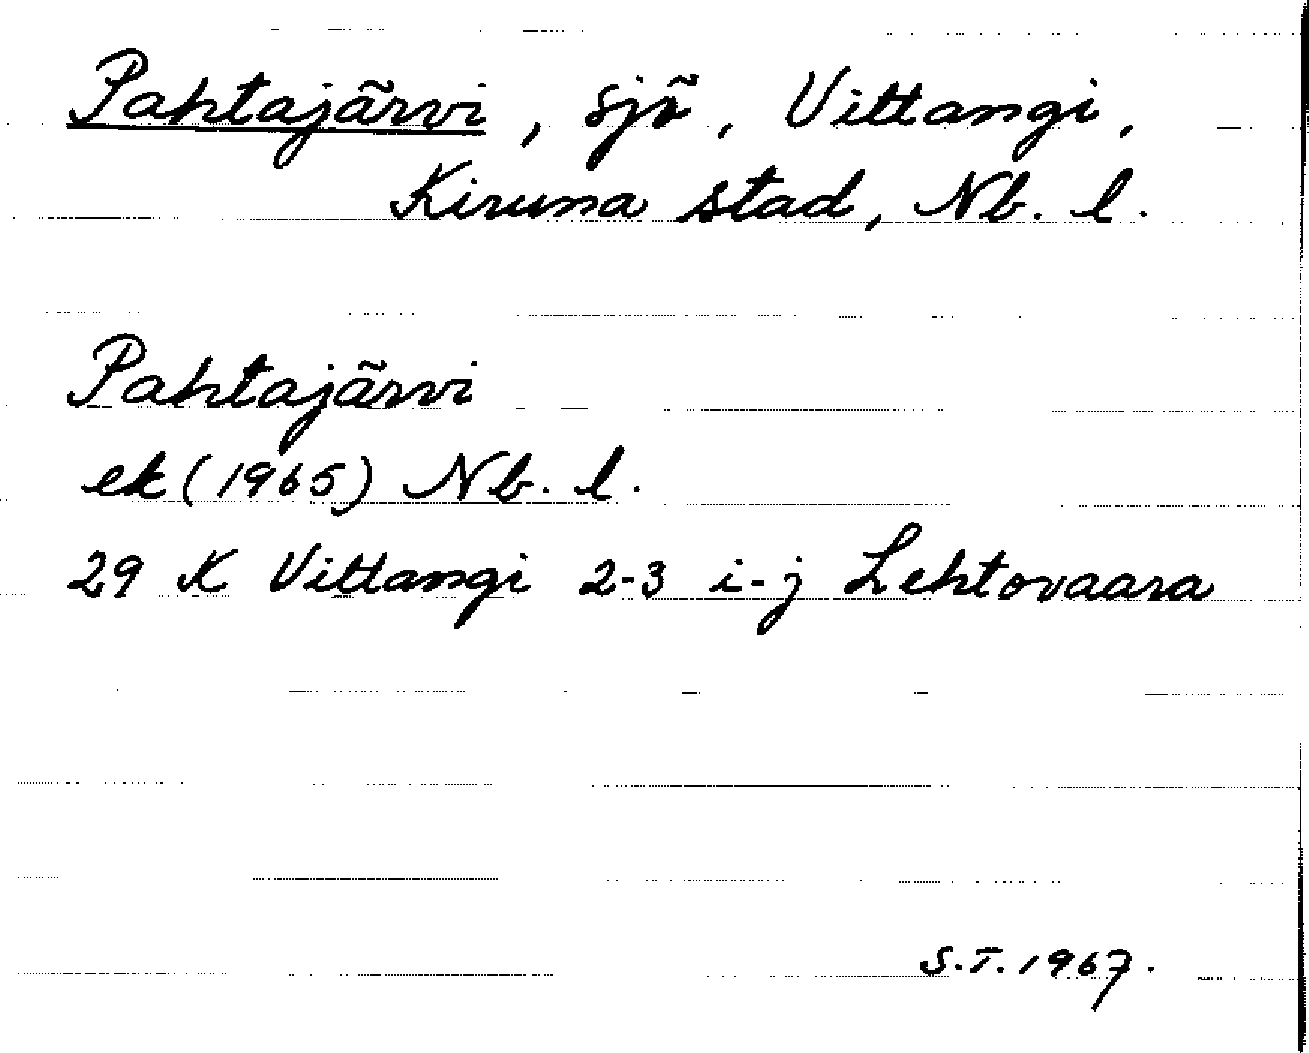 Pahtajärvi, sjö, Vittangi,
Kiruna stad, Nb. l.
Pahtajärvi
ek (1965) Nb. l.
29 K Vittangi 2-3 i-j Lehtovaara
S.T. 1967.